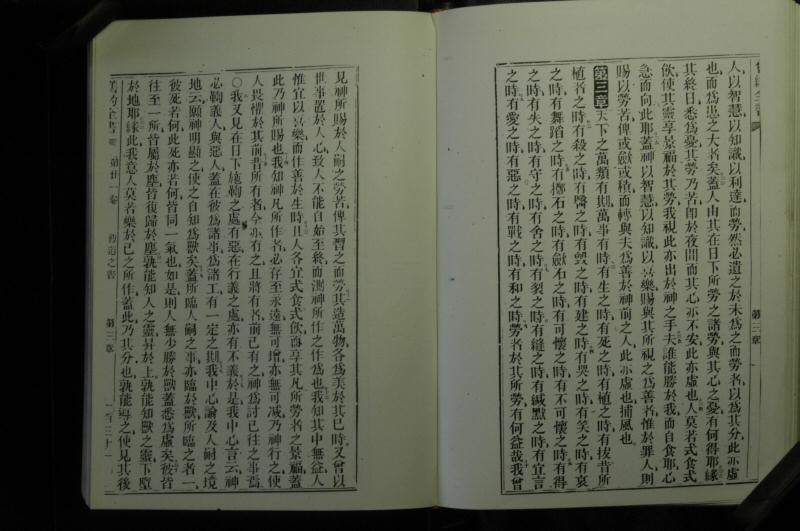 人以智慧以知識以利達而勞然必遺之於未爲之而勞者以爲其分此亦虛
也而爲患之大者矣蓋人由其在日下所勞之諸勞與其心之憂有何得耶緣
其終日悉爲憂其勞乃苦卽於夜間而其心亦不安此亦虛也人莫若食式
飲使其靈享景福於其勞我視此亦出於神之手夫誰能勝於我而自食耶心
急而向此耶蓋神以智慧以知識以喜樂賜與其所視之爲善者惟於罪人則
賜以勞苦俾或斂或積而轉與夫爲善於神前之人此亦虛也捕風也
第三章天下之萬類有期萬事有時有生之時有死之時有植之時有拔昔所
植者之時有殺之時有醫之時有毀之時有建之時有哭之時有笑之時有哀
之時有舞蹈之時有擲石之時有斂石之時有可懷之時有不可懷之時有得
之時有失之時有守之時有舍之時有裂之時有縫之時有緘默之時有宜言
之時有愛之時有惡之時有戰之時有和之時勞者於其所勞有何益哉我曾
第三章
見神所賜於人嗣之勞苦俾其習之而勞其造萬物各爲美於其巳時又曾以
世事置於人心致人不能自始至終而測神所作之作爲也我知其中無益人
惟宜以喜樂而作善於生時且人各宜式食式飲而享其凡所勞者之景福蓋
此乃神所賜也我知神凡所作者必存至永遠無可增亦無可减乃神行之使
人畏懼於其前昔所有者今亦有之且將有者前已有之神爲討已往之事焉
○我又見在日下施鞫之處有惡在行義之處亦有不義於是我中心言云神
必鞫義人與惡人蓋在彼爲諸事爲諸工有一定之期我中心論及人嗣之境
地云願神明顯之使之自知爲獸矣蓋所臨人嗣之事亦臨於獸所臨之者一
彼死若何此死亦若何皆同一氣也如是則人無少勝於獸蓋悉爲虛矣彼皆
往至一所皆屬於塵皆復歸於塵孰能知人之靈昇於上孰能知獸之靈下墮
於地耶緣此我意人莫若樂於己之所作蓋此乃其分也孰能導之使見其後
舊約全書 第廿一卷 傳道之書 第三章 一百三十一